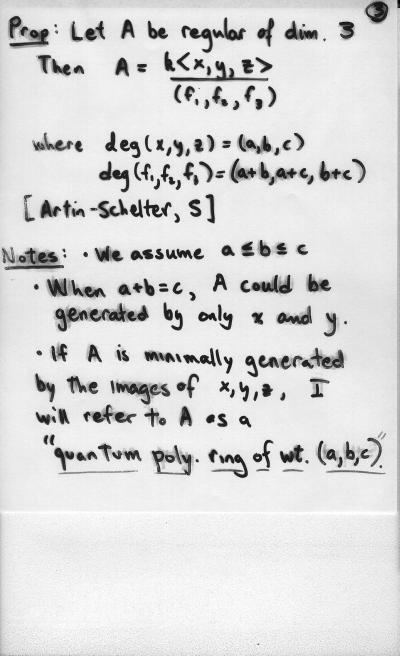 3
Prop: Let A be regular of dim. 3
Then A = k<x,y,z>
(f₁,f₂,f₃)
where deg(x,y,z) = (a,b,c)
deg(f₁,f₂,f₃) = (a+b,a+c,b+c)
[Artin-Schelter, S]
Notes: • We assume a≤b≤c
• When a+b=c, A could be
generated by only x and y.
• If A is minimally generated
by the images of x,y,z, I
will refer to A as a
"quantum poly. ring of wt. (a,b,c)".